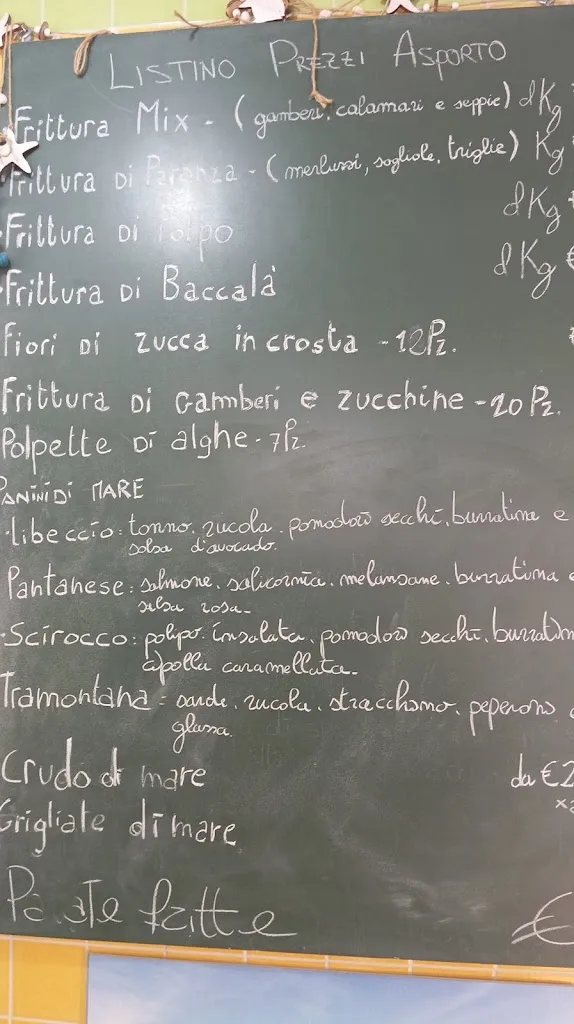 LISTINO PREZZI ASPORTO
Frittura Mix - (gamberi, calamari e seppie) al Kg
Frittura Di Paranza - (merluzzi, sogliole, triglie) Kg
Frittura Di Polpo al Kg
Frittura Di Baccalà al Kg €
Fiori Di zucca in crosta - 12Pz.
Frittura Di Gamberi e zucchine - 20 Pz.
Polpette Di alghe - 7Pz.
PANINI DI MARE
Libeccio: tonno, rucola, pomodori secchi, burratina e
salsa d'avocado.
Pantanese: salmone, salicornia, melanzane, burratina
salsa rosa -
Scirocco: polipo, insalata, pomodori secchi, burratin
cipolla caramellata -
Tramontana = sarde, rucola, stracchino, peperoni
glassa.
Crudo di mare da €2
Grigliate di mare
fritte €